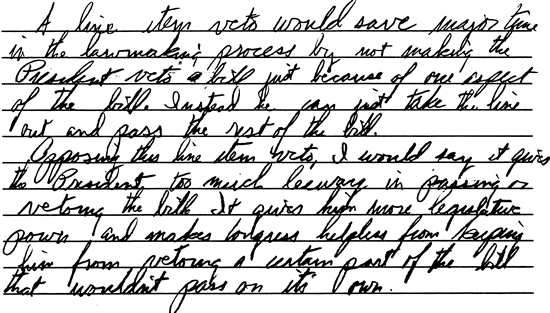 A line item veto would save major time
in the lawmaking process by not making the
President veto a bill just because of one aspect
of the bill. Instead he can just take the line
out and pass the rest of the bill.
Opposing this line item veto, I would say it gives
the President too much leeway in passing or
vetoing the bill. It gives him more legislative
power and makes Congress helpless from keeping
him from vetoing a certain part of the bill
that wouldn't pass on its own.